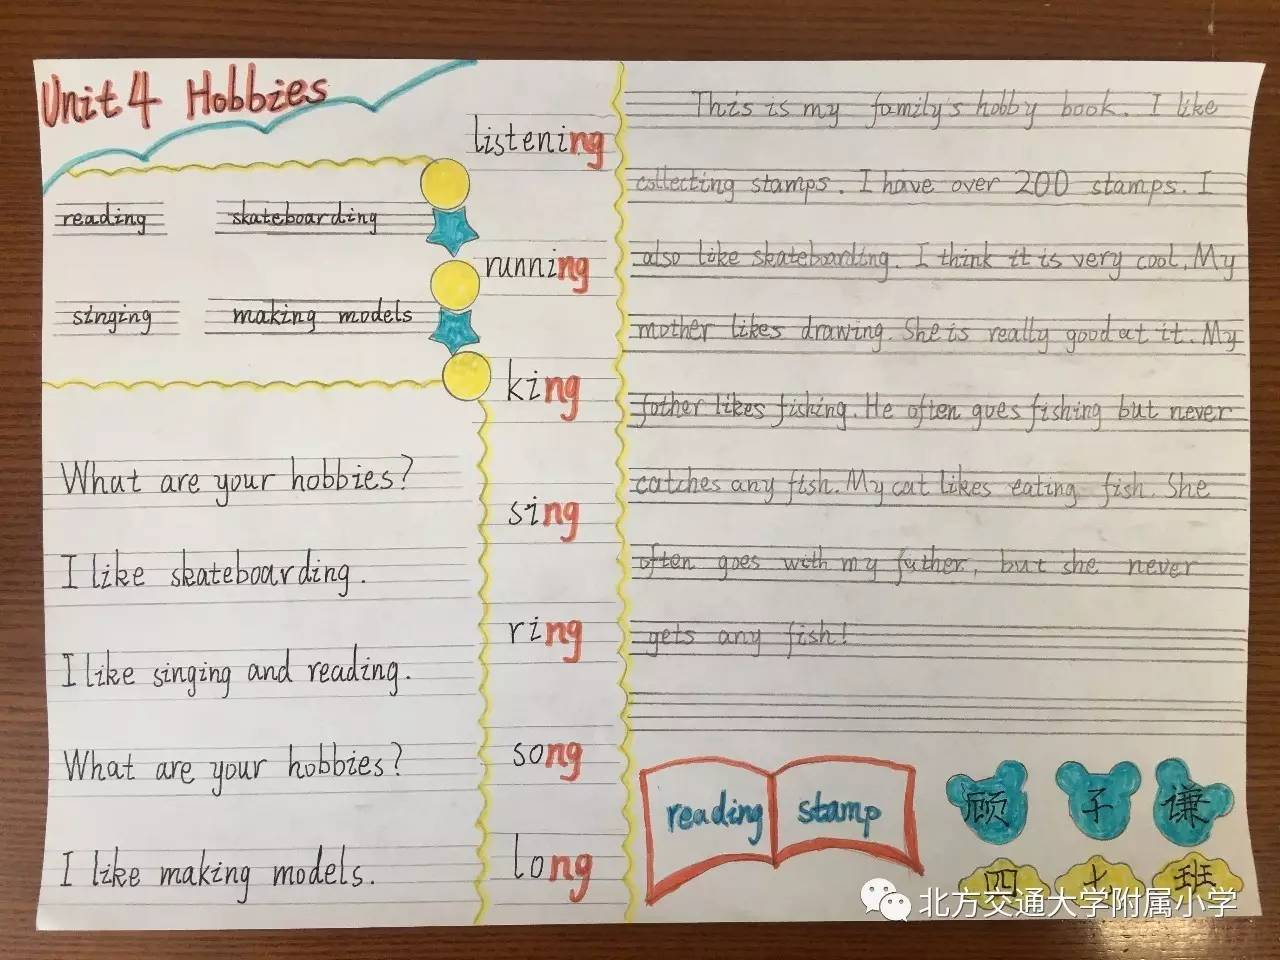 Unit 4 Hobbies
reading skateboarding
singing making models
What are your hobbies?
I like skateboarding.
I like singing and reading.
What are your hobbies?
I like making models.
listening
running
king
sing
ring
song
long
This is my family's hobby book. I like
collecting stamps. I have over 200 stamps. I
also like skateboarding. I think it is very cool. My
mother likes drawing. She is really good at it. My
father likes fishing. He often goes fishing but never
catches any fish. My cat likes eating fish. She
often goes with my father, but she never
gets any fish!
reading stamp
顾子谦
四七班
北方交通大学附属小学